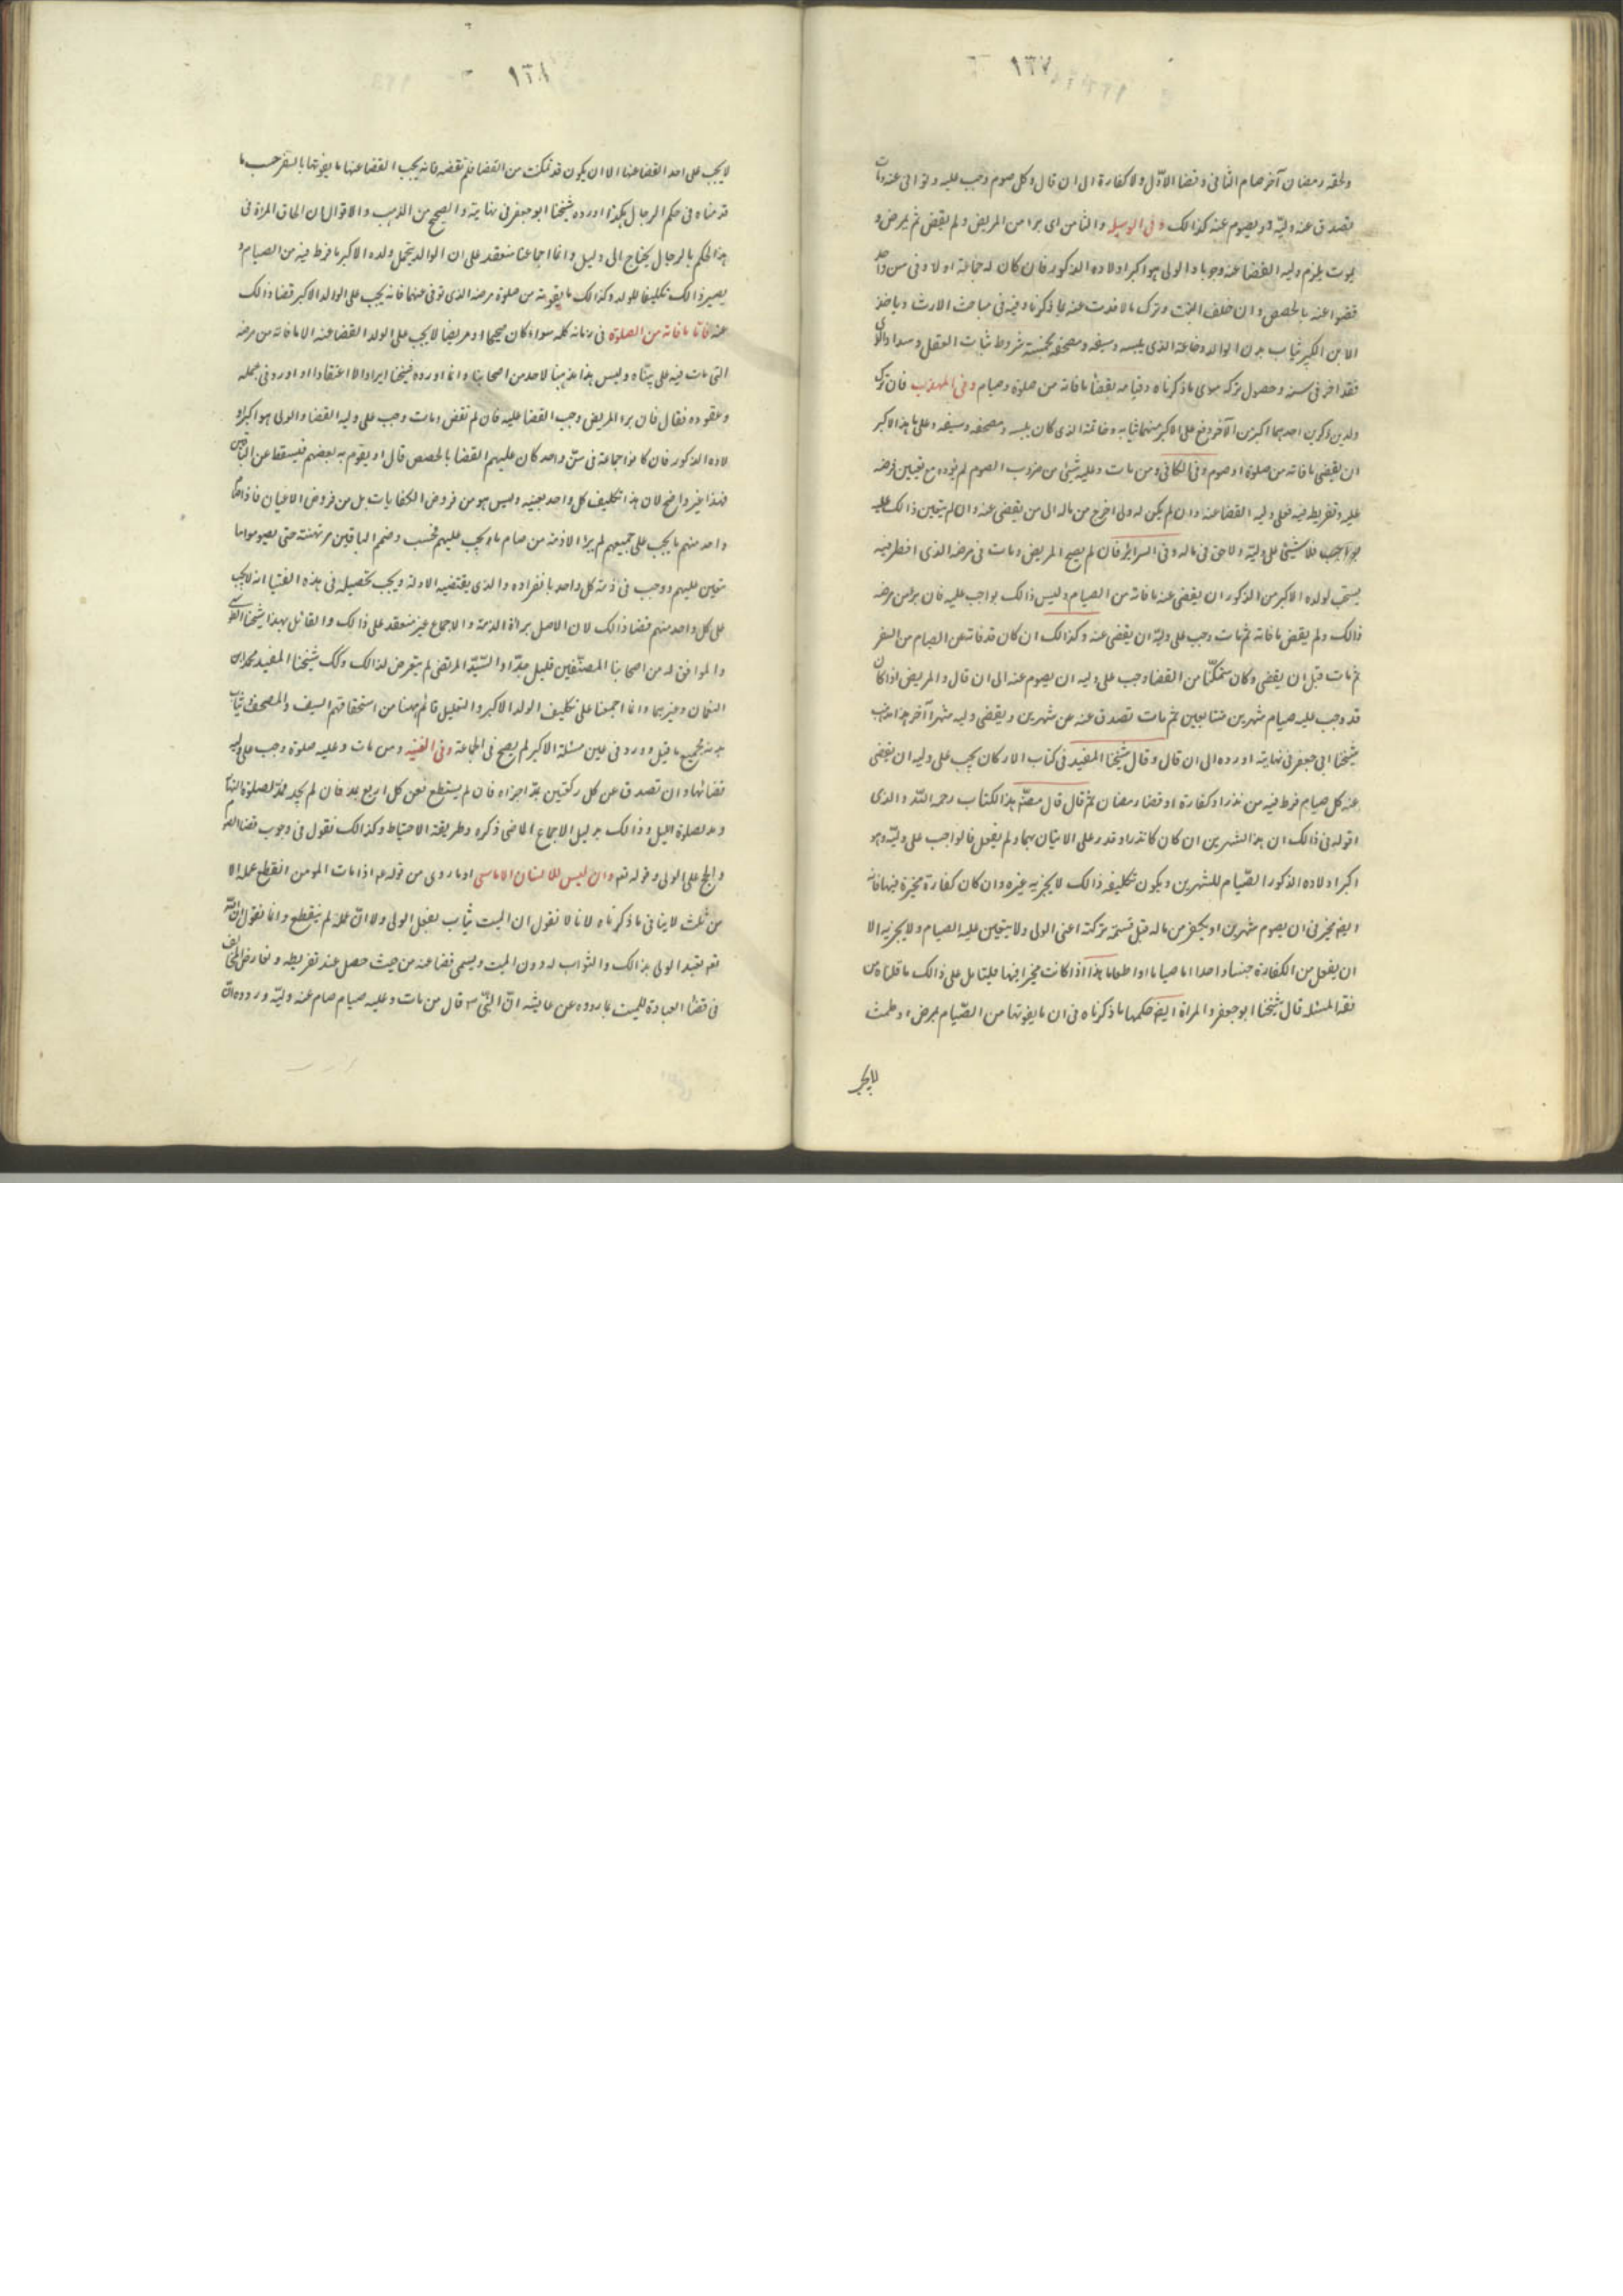 ١٣٧
ولحقه رمضان آخر صام الثانى وقضا الاوّل ولا كفارة الى ان قال وكل صوم وجب عليه وتوانى عنه ومات
يصدق عنه وليّه او يصوم عنه كذالك وفى الوسيله والثامن اى برا من المرض ولم يقض ثم يمرض و
يموت يلزم وليه القضا عنه وجوبا والولى هو اكبر اولاده الذكور فان كان له جماعة اولاد فى سن واحد
قضوا عنه بالحصص وان خلف البنت وترك مالا فدت عنه بما ذكرنا وفيه فى مباحث الارث وياخذ
الابن الكبير ثياب بدن الوالد وخاتمه الذى يلبسه وسيفه ومصحفه بخمسة شروط ثبات العقل وسداد الراى
فقد اخر فى سنه وحصول تركه سوى ما ذكرناه وقيامه بقضا ما فاته من صلوة وصيام وفى المهذب فان ترك
ولدين ذكرين احدهما اكبر من الآخر دفع على الاكبر منهما ثيابه وخاتمه الذى كان يلبسه ومصحفه وسيفه وعلى هذا الاكبر
ان يقضى ما فاته من صلوة او صوم وفى الكافى ومن مات وعليه شيئ من ضروب الصوم لم يؤده مع تعيين فرضه
عليه وتفريطه فيه فعلى وليه القضا عنه وان لم يكن له ولى اخرج من ماله الى من يقضى عنه وان لم يتعين ذالك عليه
بواجب فلا شيئ على وليّه ولا حق فى ماله وفى السراير فان لم يصح المريض ومات فى مرضه الذى افطر فيه
يستحب لولده الاكبر من الذكور ان يقضى عنه ما فاته من الصيام وليس ذالك بواجب عليه فان برأ من مرضه
ذالك ولم يقض ما فاته ثم مات وجب على وليّه ان يقضى عنه وكذالك ان كان قد فاته من الصيام من السفر
ثم مات قبل ان يقضى وكان متمكنّا من القضا وجب على وليه ان يصوم عنه الى ان قال والمريض اذا كان
قد وجب عليه صيام شهرين متتابعين ثم مات تصدق عنه عن شهرين ويقضى وليه شهراً آخر هذا مذهب
شيخنا ابى جعفر فى نهايته اورده الى ان قال وقال شيخنا المفيد فى كتاب الاركان يجب على وليه ان يقضى
عنه كل صيام فرط فيه من نذر او كفارة او قضا رمضان ثم قال قال مصنّف هذا الكتاب رحمه اللّه والذى
اقوله فى ذالك ان هذا الشهرين ان كان كانا نذرا وقدر على الاتيان بهما ولم يفعل فالواجب على وليّه وهو
اكبر اولاده الذكور الصّيام للشهرين ويكون تكليفه ذالك لا يجزيه غيره وان كان كفارة مخيرة فيها فانه
ايضا مخير فى ان يصوم شهرين او يكفر من ماله قبل قسمة تركته اعنى الولى ولا يتعين عليه الصيام ولا يجزيه الا
ان يفعل من الكفارة جنسا واحدا اما صياما او اطعاما هذا اذا كانت مخيرا فيها فليتامل على ذالك ما قلناه من
فقه المسئله قال شيخنا ابو جعفر والمراة ايضا حكمها ما ذكرناه فى ان ما يفوتها من الصّيام لمرض او طمث
لا يجب
١٣٨
لا يجب على احد القضا عنها الا ان يكون قد تمكنت من القضا فلم تقضه فانه يجب القضا عنها ما يفوتها بالسفر حسب ما
قدمناه فى حكم الرجال هكذا اورده شيخنا ابو جعفر فى نهايته والصحيح من المذهب والاقوال ان الحاق المراة فى
هذا الحكم بالرجال يحتاج الى دليل وانما اجماعنا منعقد على ان الوالد يتحمل ولده الاكبر ما فرط فيه من الصيام و
يصير ذالك تكليفا للولد وكذالك ما يفوته من صلوة مرضه الذى توفى فيها فانه يجب على الولد الاكبر قضا ذالك
عنه فاما ما فاته من الصلوة فى زمانه كله سواء كان صحيحا او مريضا لا يجب على الولد القضا عنه الا ما فاته من مرضه
التى مات فيه على بيّناه وليس هذا مذهبنا لاحد من اصحابنا وانما اورده شيخنا ايرادا لا اعتقادا او اورد فى جمله
وعقوده فقال فان برا المريض وجب القضا عليه فان لم يقض ومات وجب على وليه القضا والولى هو اكبر او
لاده الذكور فان كانوا جماعة فى سنّ واحد كان عليهم القضا بالحصص قال او يقوم به بعضهم فيسقط عن الباقين
فهذا غير واضح لان هذا تكليف كل واحد بعينه وليس هو من فروض الكفايات بل من فروض الاعيان فاذا صام
واحد منهم ما يجب على جميعهم لم يبرا الا ذمة من صام ما وجب عليهم فحسب وذمم الباقين مرتهنة حتى يصوموا ما
تعين عليهم ووجب فى ذمة كل واحد بانفراده والذى يقتضيه الادلة ويجب تحصيله فى هذه الفتيا انه لا يجب
على كل واحد منهم قضا ذالك لان الاصل براءة الذمة والاجماع غير منعقد على ذالك والقائل بهذا شيخنا الطوسى
والموافق له من اصحابنا المصنّفين قليل جدّا والسّيد المرتضى لم يتعرض لذالك وكك شيخنا المفيد محمد بن
النعمان وغيرهما وانما اجمعنا على تكليف الولد الاكبر والتعليل قائم ههنا من استحقاقهم السيف والمصحف وثياب
بدنه جميع ما قيل وورد فى عين مسئلة الاكبر لم يصح فى الجماعة وفى الغنيه ومن مات وعليه صلوة وجب على وليه
قضائها وان تصدق عن كل ركعتين بمدّ اجزاه فان لم يستطع فعن كل اربع بمد فان لم يجد فمدّ لصلوة النهار
ومد لصلوة الليل وذالك بدليل الاجماع الماضى ذكره وطريقة الاحتياط وكذالك نقول فى وجوب قضا الصوم
والحج على الولى وقوله تعم وان ليس للانسان الا ما سعى او ما روى من قوله عم اذا مات المومن انقطع عمله الا
من ثلث لا ينافى ما ذكرناه لانا لا نقول ان الميت يثاب بفعل الولى ولا انّ عمله لم ينقطع وانما نقول ان اللّه
تعم تعبد الولى بذالك والثواب له دون الميت ويسمى قضا عنه من حيث حصل عند تفريطه وتعارض المخالف
فى قضا العبادة للميت بما رووه عن عايشه انّ النبّى ص قال من مات وعليه صيام صام عنه وليّه ورووه انّ